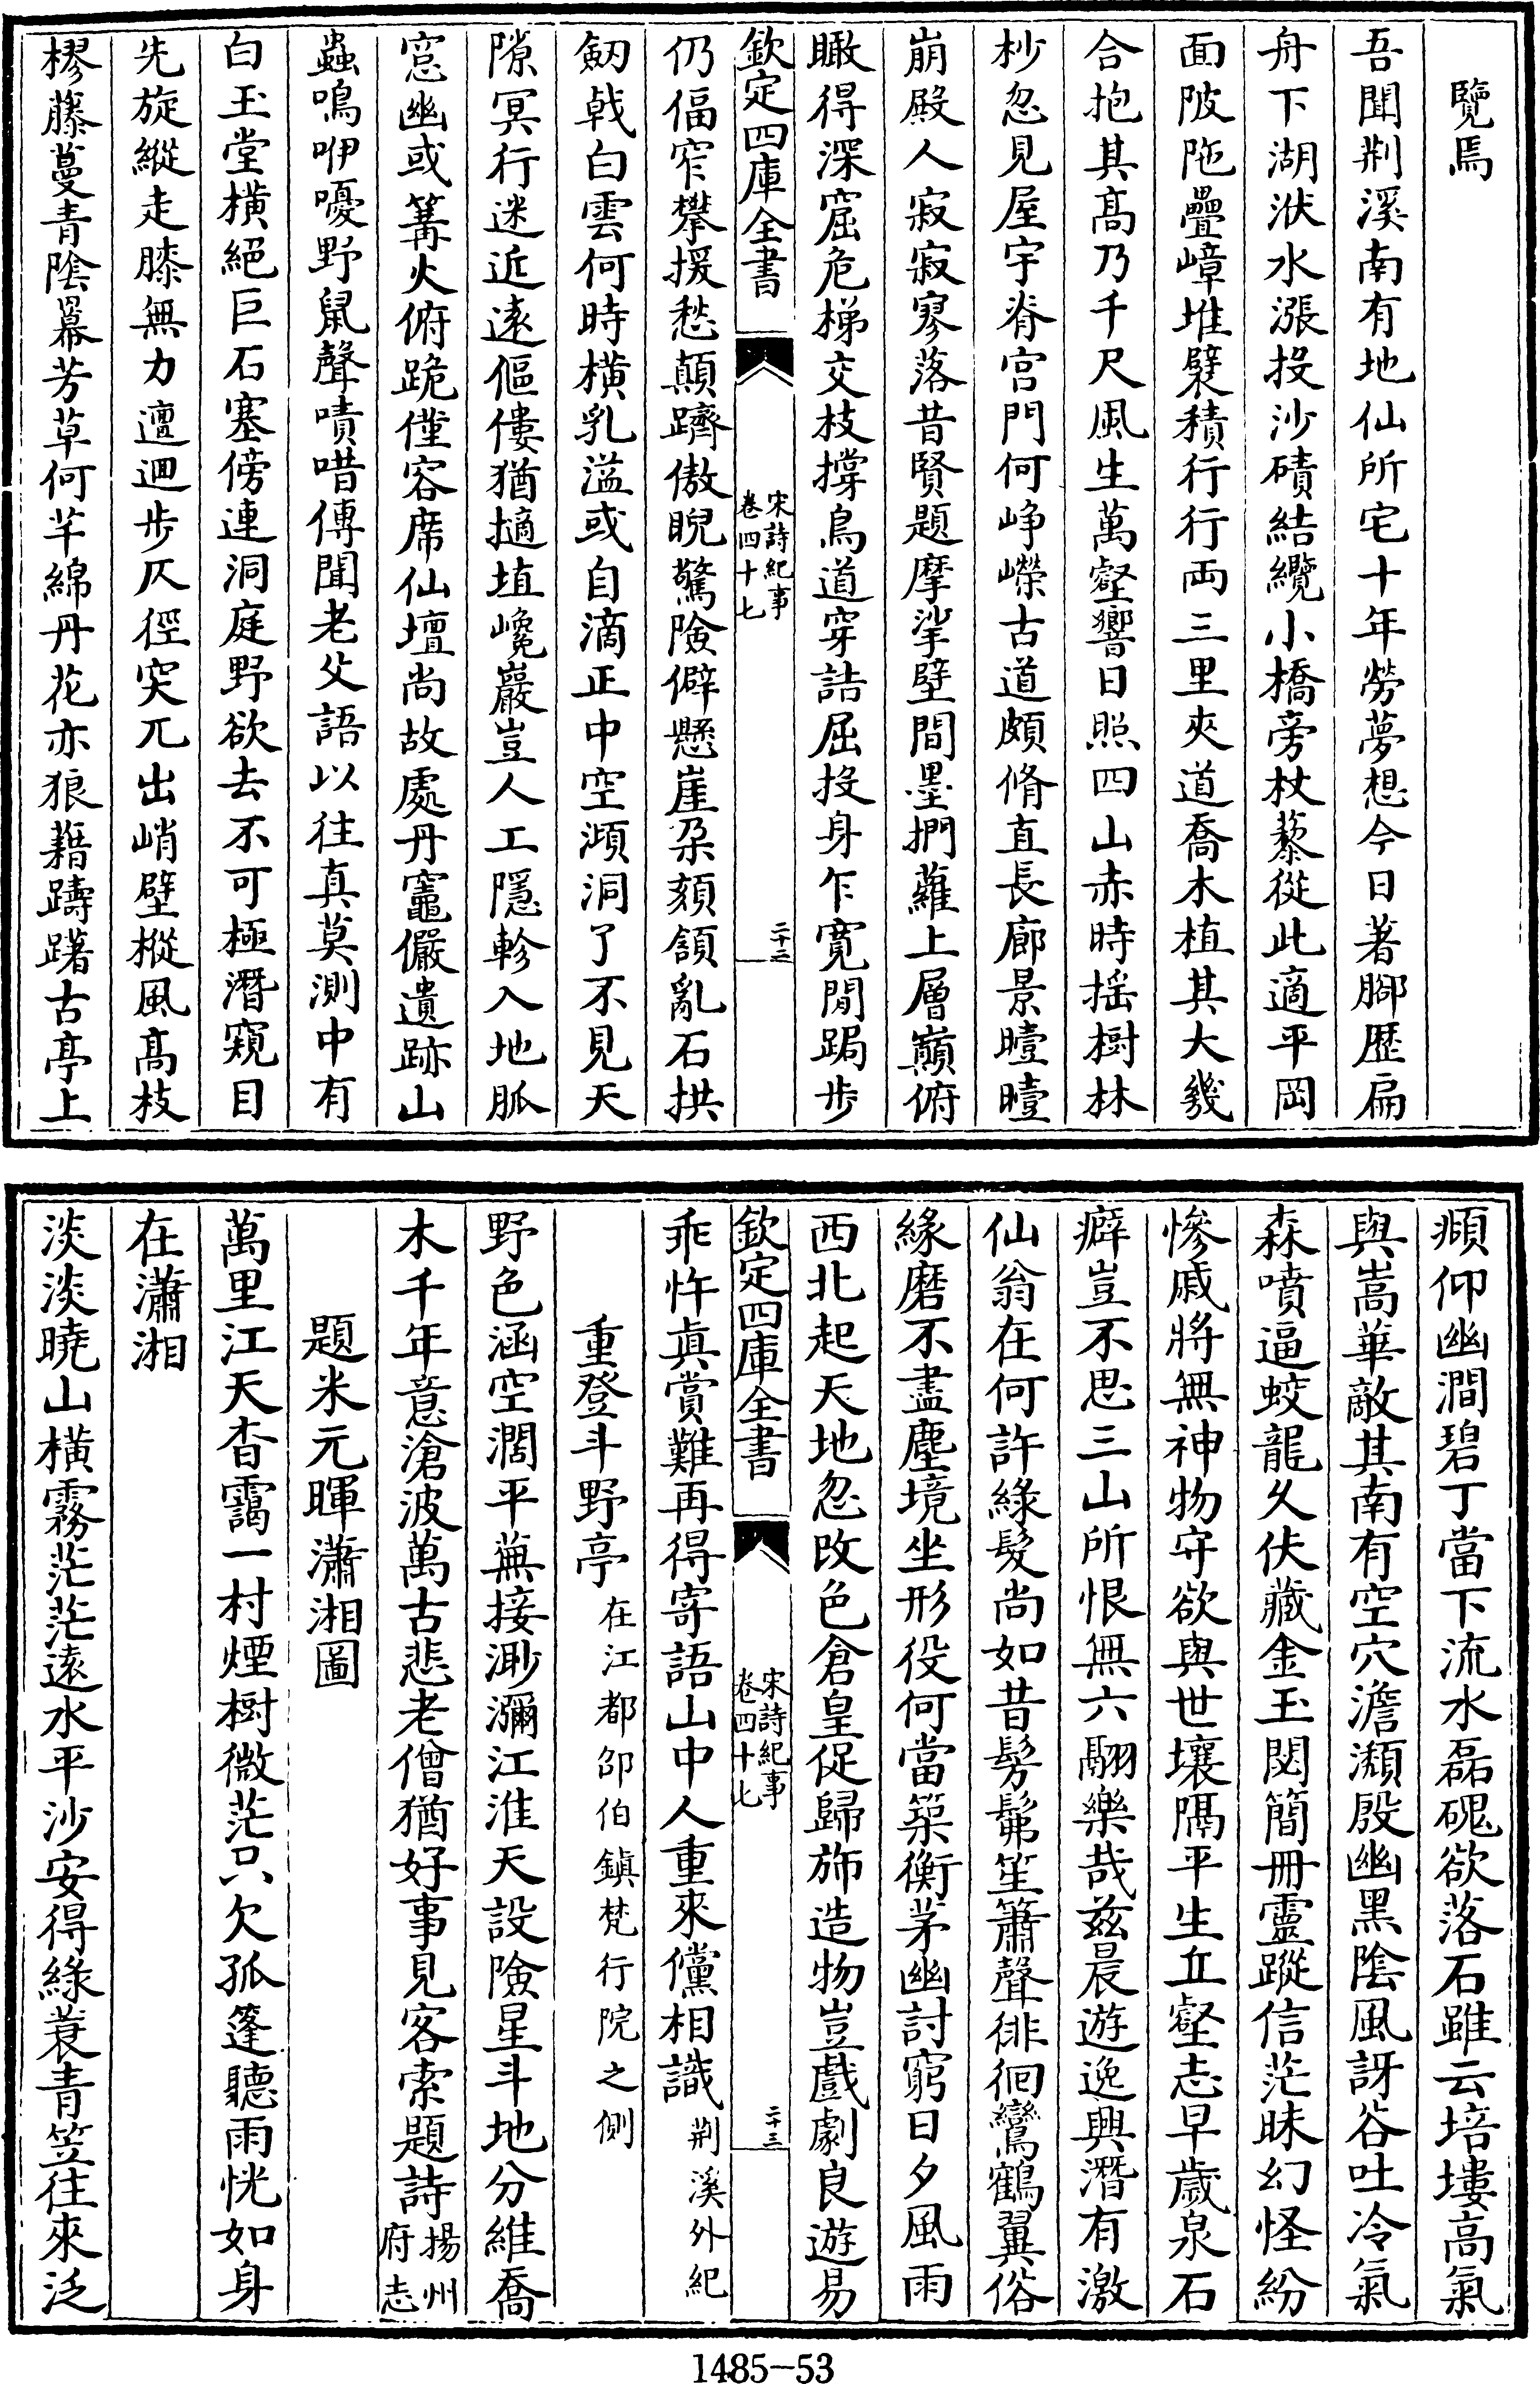 覽焉
吾聞荆溪南有地仙所宅十年勞夢想今日著腳歷扁
舟下湖洑水漲投沙磧結纜小橋旁杖藜從此適平岡
面陂陁疊嶂堆襞積行行両三里夾道喬木植其大幾
合抱其髙乃千尺風生萬壑響日照四山赤時揺樹林
杪忽見屋宇脊宫門何崢嶸古道頗脩直長廊景曀曀
崩殿人寂寂寥落昔賢題摩挲壁間墨捫蘿上層巔俯
瞰得深窟危梯交枝撐鳥道穿詰屈投身乍寛閒跼步
欽定四庫全書
宋詩紀事
卷四十七
二十二
仍偪窄攀援愁顛躋傲睨驚險僻懸崖朶頦頷亂石拱
劒㦸白雲何時横乳溢或自滴正中空澒洞了不見天
隙冥行迷近逺傴僂猶擿埴巉巖豈人工隱軫入地脈
窓幽或篝火俯跪僅容席仙壇尚故處丹竈儼遺跡山
蟲鳴咿嚘野䑕聲嘖唶傳聞老父語以往真莫測中有
白玉堂横絕巨石塞傍連洞庭野欲去不可極潛窺目
先旋縱走膝無力邅迴步仄徑突兀出峭壁樅風髙枝
樛藤蔓青陰羃芳草何芊綿丹花亦狼藉躊躇古亭上
頫仰幽澗碧丁當下流水磊磈欲落石雖云培塿高氣
與嵩華敵其南有空穴澹瀬殷幽黒陰風訝谷吐冷氣
森噴逼蛟龍久伏藏金玉閟簡冊靈蹤信茫昧幻怪紛
慘戚將無神物守欲與世壤隔平生丘壑志早歲泉石
癖豈不思三山所恨無六翮樂哉兹晨遊逸興潛有激
仙翁在何許綠髮尚如昔髣髴笙簫聲徘徊鸞鶴翼俗
緣磨不盡塵境坐形役何當築衡茅幽討窮日夕風雨
西北起天地忽改色倉皇促歸斾造物豈戲劇良遊易
欽定四庫全書
宋詩紀事
卷四十七
二十三
乖忤真賞難再得寄語山中人重來儻相識荆溪外紀
重登斗野亭在江都邵伯鎮梵行院之側
野色涵空濶平蕪接渺瀰江淮天設險星斗地分維喬
木千年意滄波萬古悲老僧猶好事見客索題詩揚州府志
題米元暉瀟湘圖
萬里江天杳靄一村煙樹微茫只欠孤篷聽雨恍如身
在瀟湘
淡淡曉山横霧茫茫逺水平沙安得綠蓑青笠往來泛
1485-53